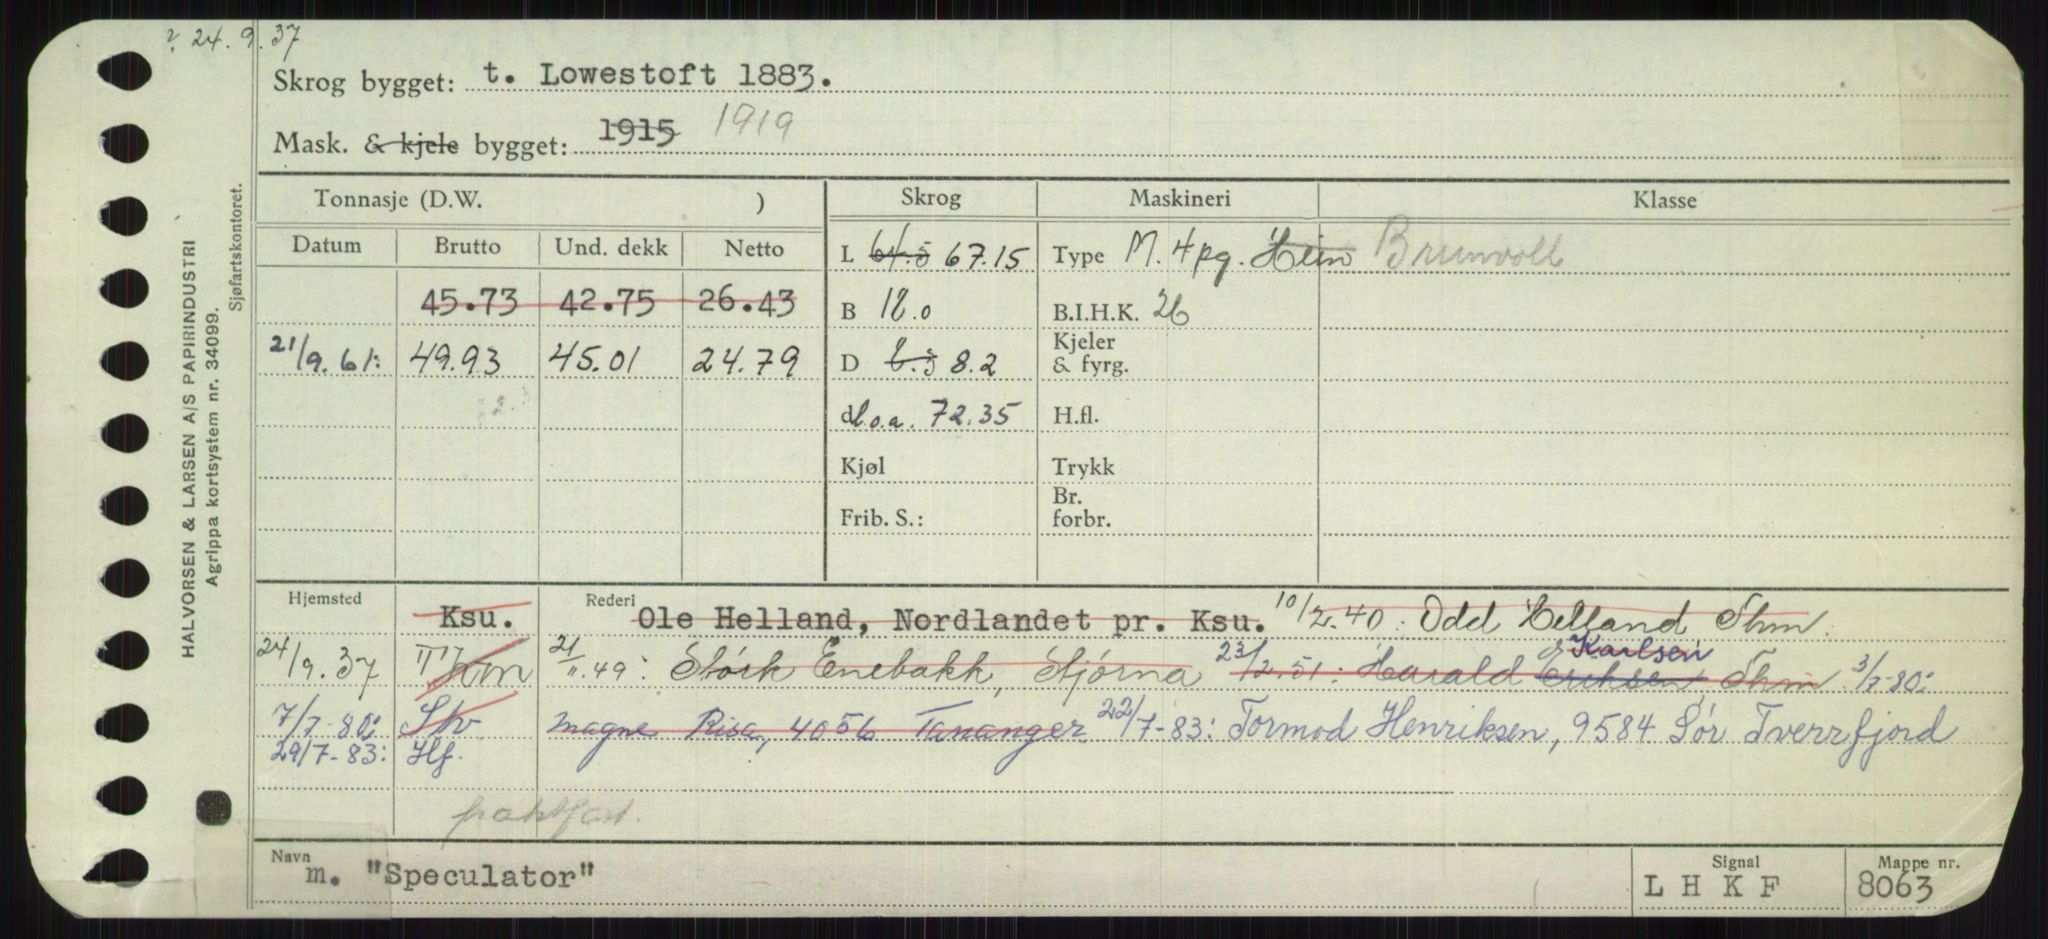 24.9.37
Skrog bygget: t. Lowestoft 1883.
Mask. & kjele bygget: 1915 1919
HALVORSEN & LARSEN A/S PAPIRINDUSTRI
Agrippa kortsystem nr. 34099.
Sjøfartskontoret.
Tonnasje (D.W. ) Skrog Maskineri Klasse
Datum Brutto Und. dekk Netto L 64.5 67.15 Type M. 4pg. Hein Brunvoll
45.73 42.75 26.43 B 18.0 B.I.H.K. 26
21/9.61: 49.93 45.01 24.79 D 8.5 8.2 Kjeler & fyrg.
d l.o.a. 72.35 H.fl.
Kjøl Trykk
Frib. S.: Br. forbr.
Hjemsted Ksu. Rederi Ole Helland, Nordlandet pr. Ksu. 10/2.40. Odd Helland Thm.
24/9.37 Thm 21/11.49: Störk Enebakk, Stjørna 23/2.51: Harald Eriksen Karlsen Thm 3/7-80:
7/7-80: Stv Magne Risa, 4056 Tananger 22/7-83: Tormod Henriksen, 9584 Sør Tverrfjord
29/7-83: Hf.
fraktfart.
Navn m. "Speculator" Signal L H K F Mappe nr. 8063